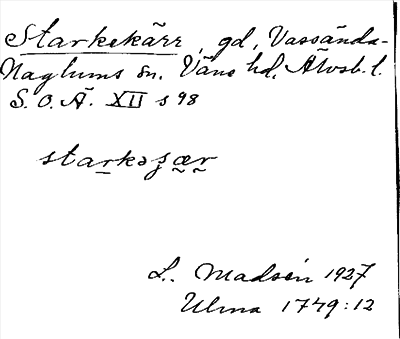 Starkekärr, gd, Vassända-
Naglums sn. Väne hd, Älvsb. l.
S.O.Ä. XII s 98
starkəʒær
L. Madsén 1927
Ulma 1749:12